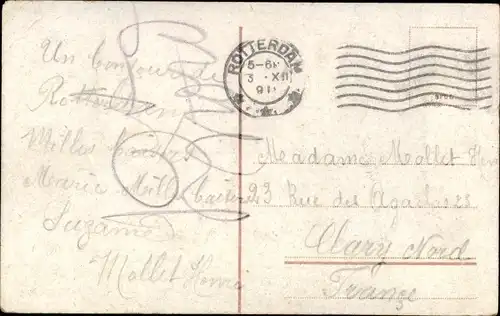 Un bonjour de
Rotterdam
Milles baisers
Marie Mille baisers
Suzanne
Mallet Henri
ROTTERDAM
5-6
3 XII
Madame Mallet
23 Rue des
Clary Nord
France